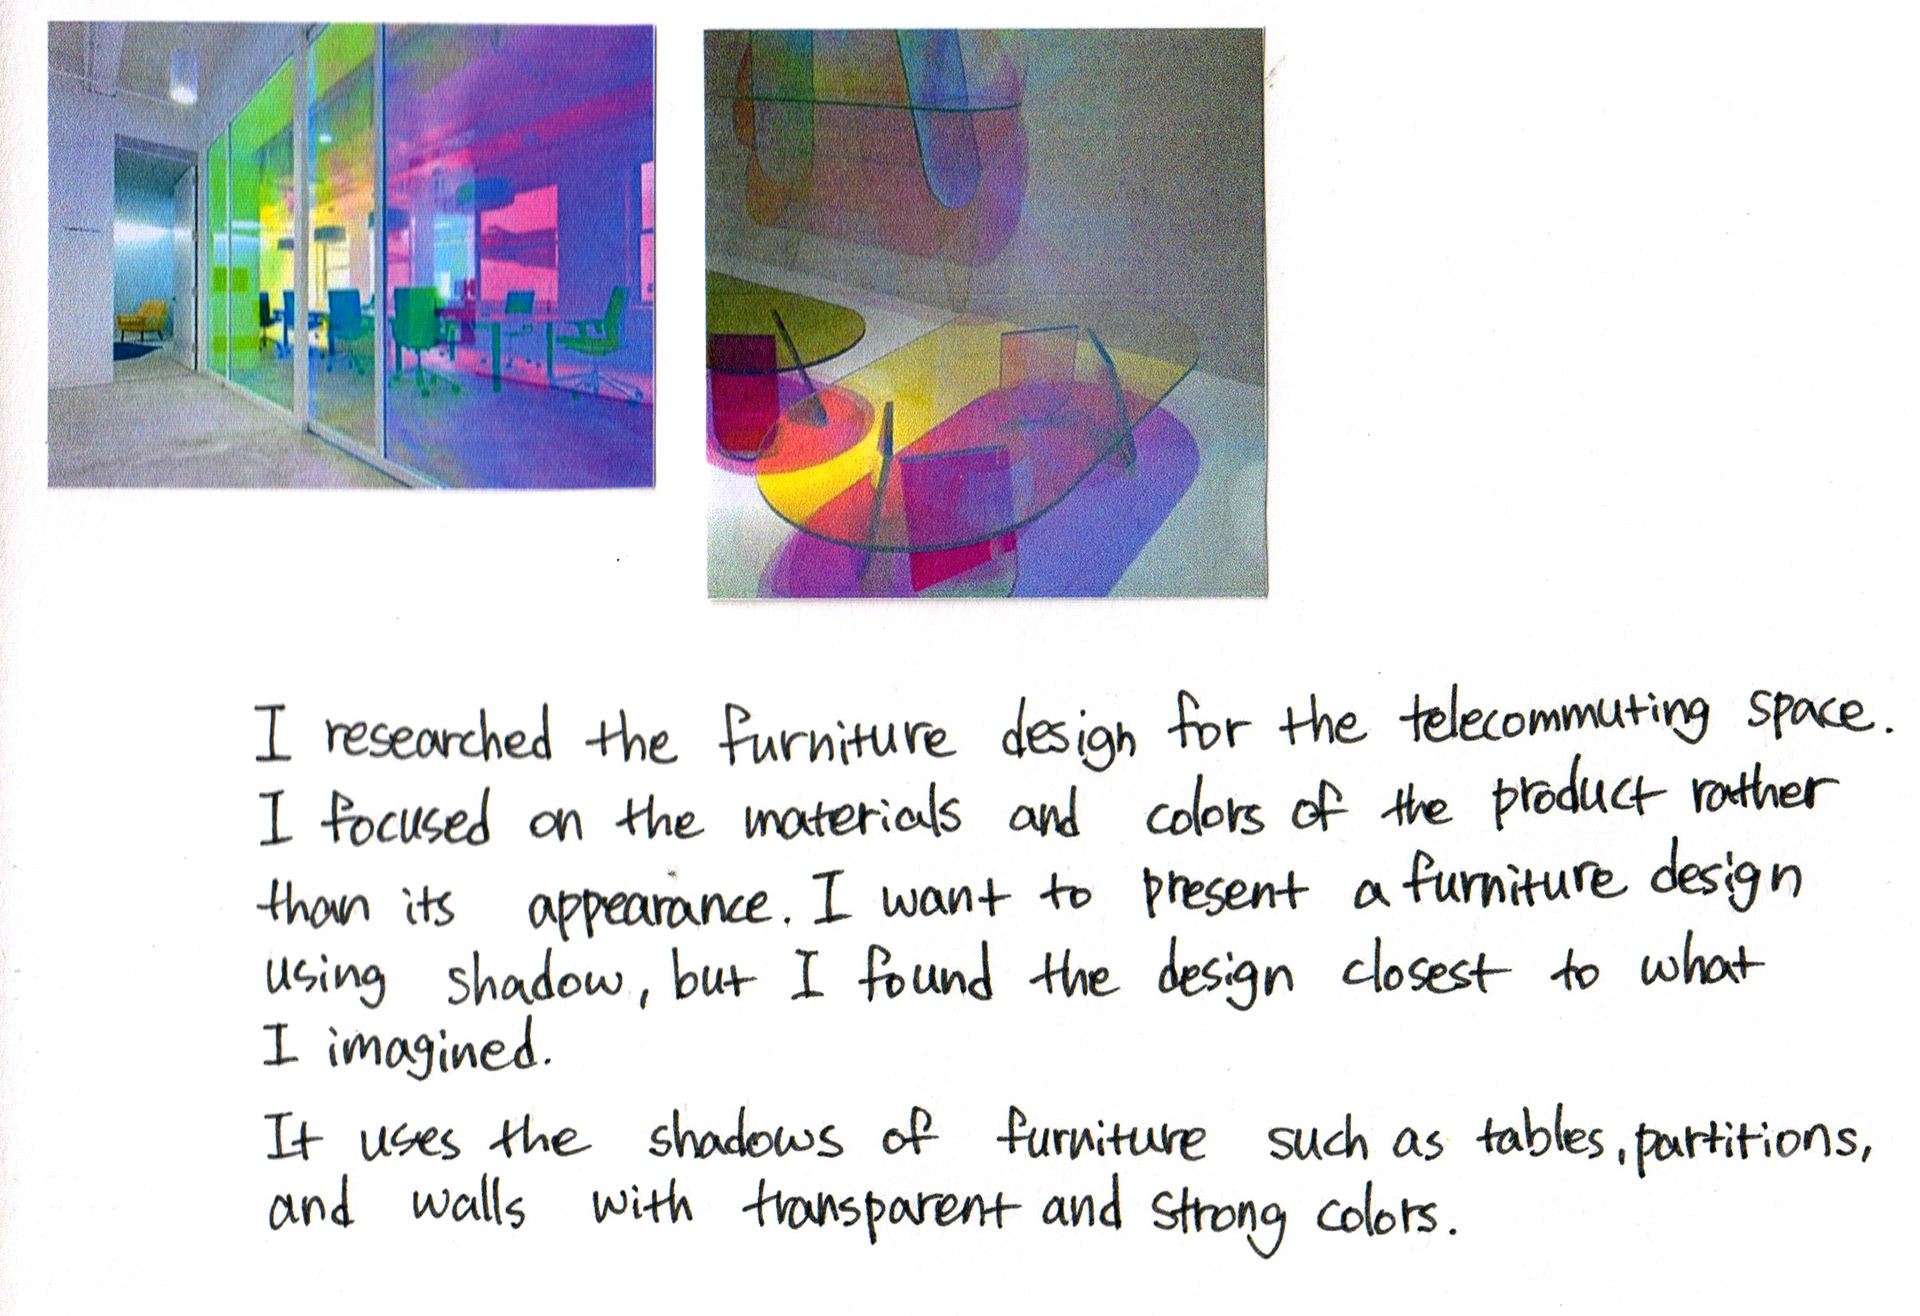 I researched the furniture design for the telecommuting space.
I focused on the materials and colors of the product rather
than its appearance. I want to present a furniture design
using shadow, but I found the design closest to what
I imagined.
It uses the shadows of furniture such as tables, partitions,
and walls with transparent and strong colors.